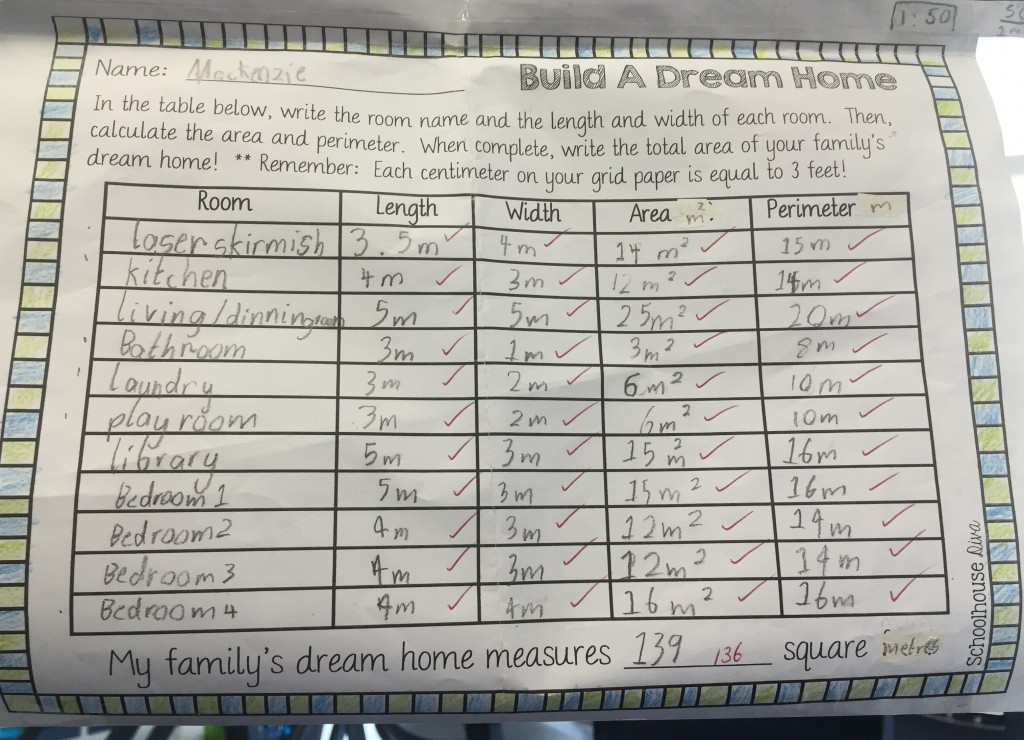 1:50
Name: Mackenzie
Build A Dream Home
In the table below, write the room name and the length and width of each room. Then,
calculate the area and perimeter. When complete, write the total area of your family's
dream home! ** Remember: Each centimeter on your grid paper is equal to 3 feet!
Room Length Width Area m². Perimeter m
laser skirmish 3.5m 4m 14 m² 15m
kitchen 4m 3m 12 m² 14m
living/dinningroom 5m 5m 25m² 20m
Bathroom 3m 1m 3m² 8m
laundry 3m 2m 6m² 10m
play room 3m 2m 6m² 10m
library 5m 3m 15 m² 16m
Bedroom 1 5m 3m 15m² 16m
Bedroom 2 4m 3m 12m² 14m
Bedroom 3 4m 3m 12m² 14m
Bedroom 4 4m 4m 16m² 16m
My family's dream home measures 139 136 square metres
Schoolhouse Diva